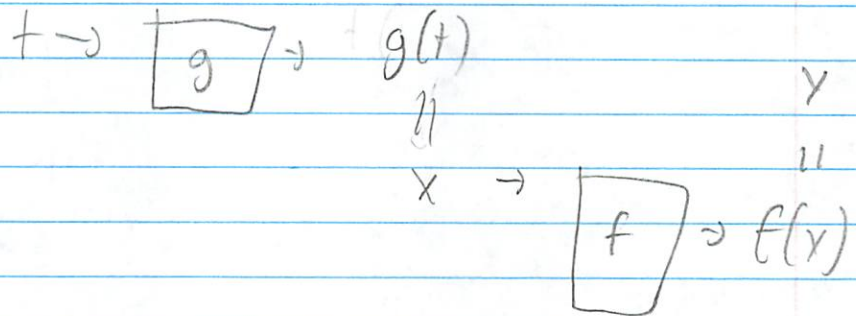 t → g → g(t)
y
||
||
x → f → f(x)